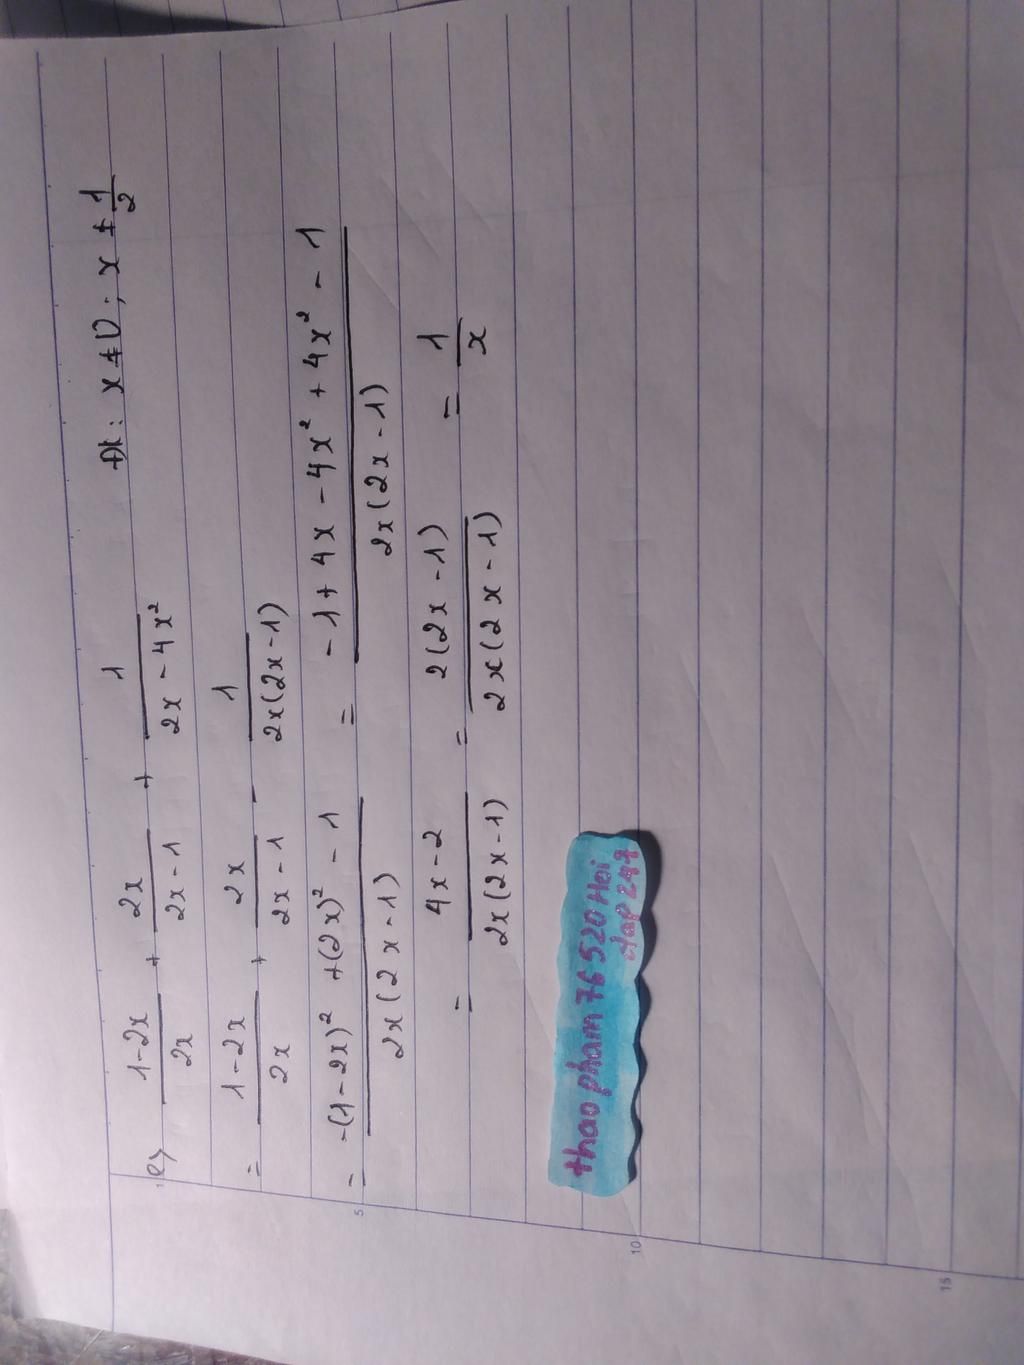 e, \frac{1-2x}{2x} + \frac{2x}{2x-1} + \frac{1}{2x-4x^2} Đk: x ≠ 0; x ≠ \frac{1}{2}
= \frac{1-2x}{2x} + \frac{2x}{2x-1} - \frac{1}{2x(2x-1)}
= \frac{-(1-2x)^2+(2x)^2-1}{2x(2x-1)} = \frac{-1+4x-4x^2+4x^2-1}{2x(2x-1)}
= \frac{4x-2}{2x(2x-1)} = \frac{2(2x-1)}{2x(2x-1)} = \frac{1}{x}
thao pham 76520 Hoi
dap 247
1
5
10
15